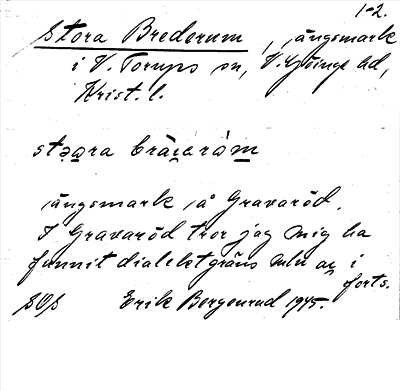 1-2.
Stora Brederum, ängsmark
i V. Torups sn, V. Göinge hd,
Krist. l.
ängsmark å Gravaröd.
I Gravaröd tror jag mig ha
funnit dialektgräns mln i
forts.
Erik Bergenrud 1945.